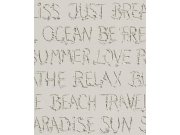 ISS JUST BREA
OCEAN BE FRE
SUMMER LOVE R
ATHE RELAX BL
E BEACH TRAVEL
ARADISE SUN S